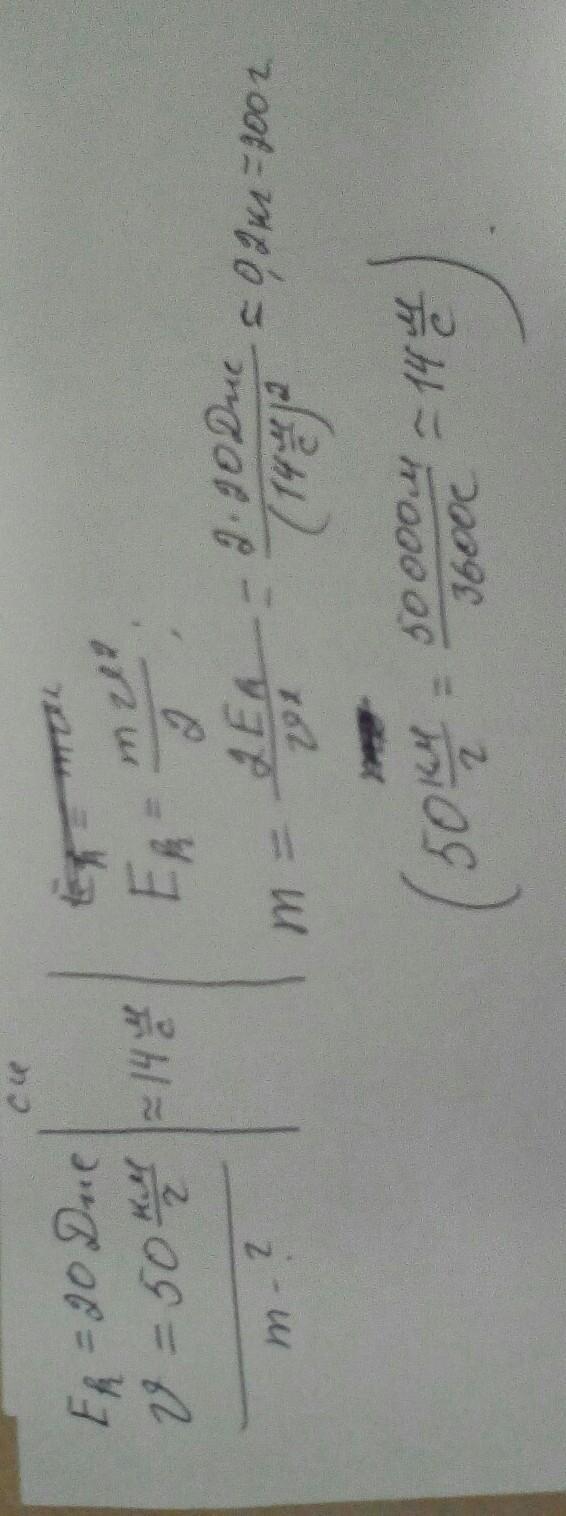 СИ
E_k = 20 Дж
v = 50 км/ч
≈ 14 м/с
m - ?
E_k = mv²/2 ;
m = 2E_k/v² = 2·20 Дж/(14 м/с)² ≈ 0,2 кг = 200 г
(50 км/ч = 50 000 м/3600 с ≈ 14 м/с).